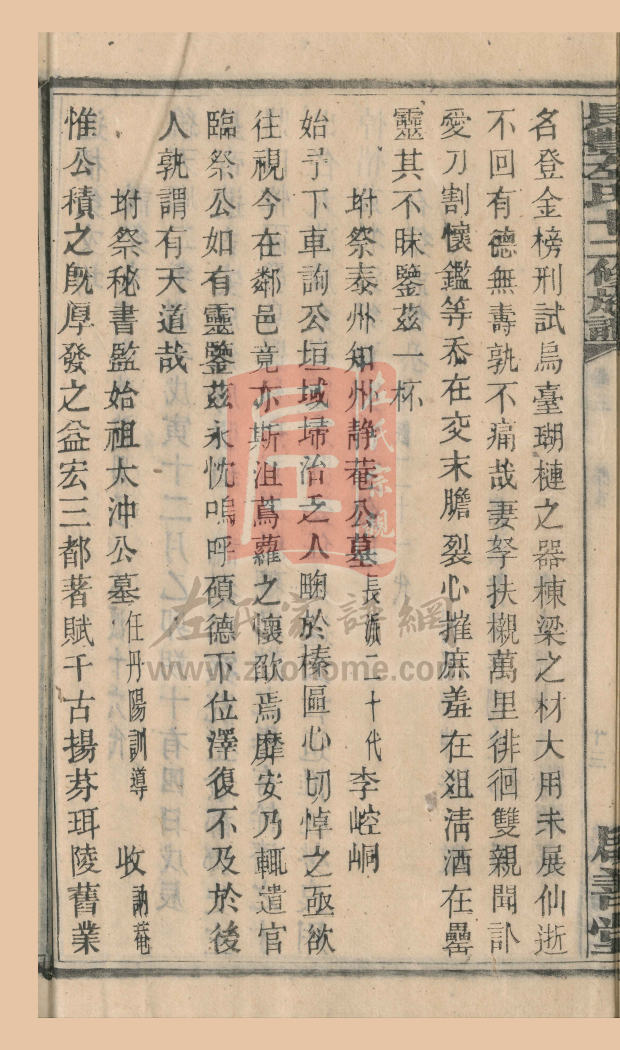 長豐左氏十二修族譜
名登金榜刑試烏臺瑚槤之器棟梁之材大用未展仙逝
不回有德無壽孰不痛哉妻孥扶櫬萬里徘徊雙親聞訃
愛刀割懷鑑等忝在交末膽裂心摧庶羞在俎清酒在罍
靈其不昧鑒茲一杯
坿祭泰州知州静菴公墓長派二十代 李崆峒
始予下車詢公垣域埽治乏人畮於榛區心切悼之亟欲
往視今在鄰邑竟亦斯沮蔦蘿之懷欿焉靡安乃輒遣官
臨祭公如有靈鑒茲永忱嗚呼碩德不位澤復不及於後
人孰謂有天道哉
坿祭秘書監始祖太沖公墓任丹陽訓導 收訥菴
惟公積之旣厚發之益宏三都著賦千古揚芬珥陵舊業
左氏宗親
左氏家譜網
www.zuohome.com